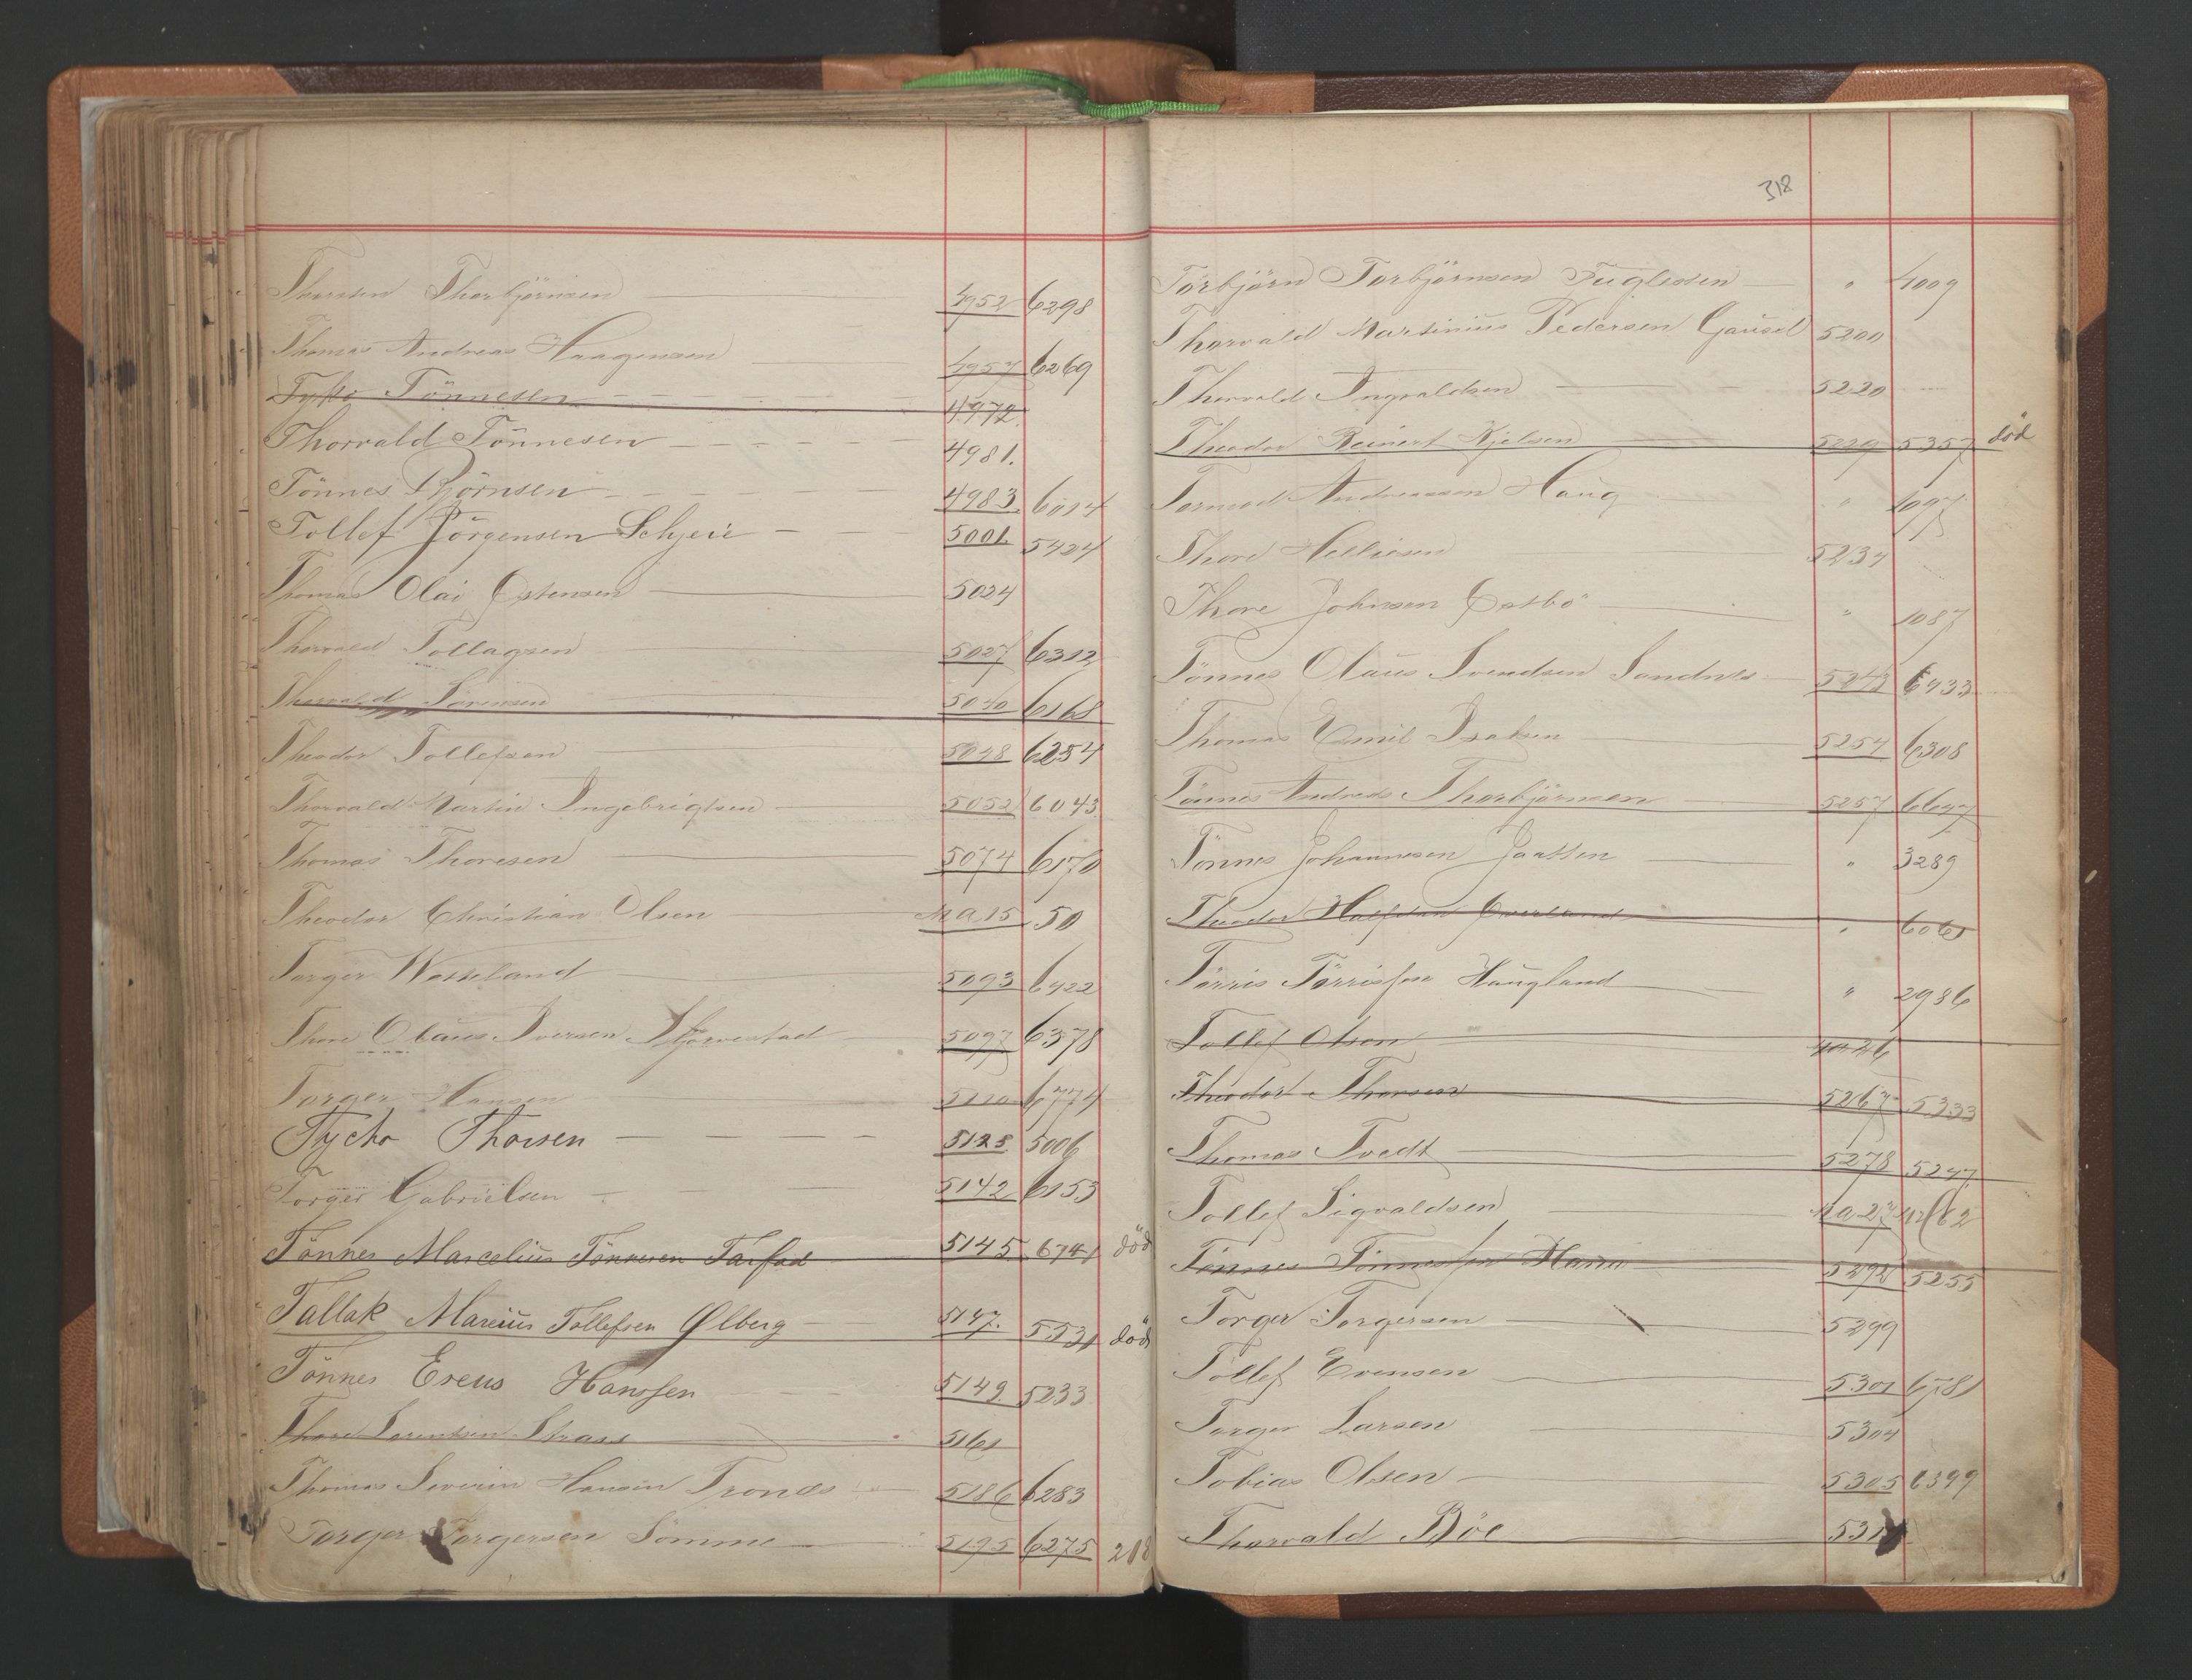 Thorsten Thorbjörnsen 4952 6298
Thomas Andreas Haagensen 4957 6269
Tykο Tönnesen 4972.
Thorvald Tönnesen 4981.
Tönnes Björnsen 4983. 6014
Tollef Jörgensen Schjeie 5001. 5424
Thomas Olai Östensen 5024
Thorvald Tollagsen 5027 6312
Thorvald Sörensen 5040 6168
Theodor Tollefsen 5048 6254
Thorvald Martin Ingebrigtsen 5052 6043
Thomas Thoresen 5074 6170
Theodor Christian Olsen Na 15 50
Torger Wasseland 5093 6422
Thore Olaus Iversen 5097 6378
Torger Hansen 5110 6774
Tycho Thorsen 5128 5006
Torger Gabrielsen 5142 6153
Tönnes Marcelius Tönnesen 5145 6741 död
Tallak Marius Tollefsen Ølberg 5147. 5531 död
Tönnes Ereus Hansen 5149. 5233
Thore Sorentsen 5161
Thomas Severin Hansen Tronds 5186 6283
Torger Torgersen Sömme 5195 6275 218
318
Torbjörn Torbjörnsen Fuglesten " 4009
Thorvald Martinius Pedersen Gausel 5200
Thorvald Ingvaldsen 5220
Theodor Reinert Kjelsen 5229 5357 död
Tormod Andreassen Haug " 1097
Thore Hellisen 5234
Thore Johnsen Östbö " 1087
Tönnes Olaus Svendsen Sandnes 5243 6433
Thomas Emil Isaksen 5254 6308
Tönnes Andreas Thorbjörnsen 5257 6647
Tönnes Johannesen Jaatten " 3289
Theodor Halfdan " 6061
Törris Törrissen Haugland " 2986
Tollef Olsen
Theodor Thorsen 5267 5333
Thomas Tvedt 5278 5247
Tollef Sigvaldsen Na 27
Tönnes Tönnessen 5292 5255
Torger Torgersen 5299
Tollef Evensen 5301 6781
Torger Larsen 5304
Tobias Olsen 5305 6399
Thorvald Böe